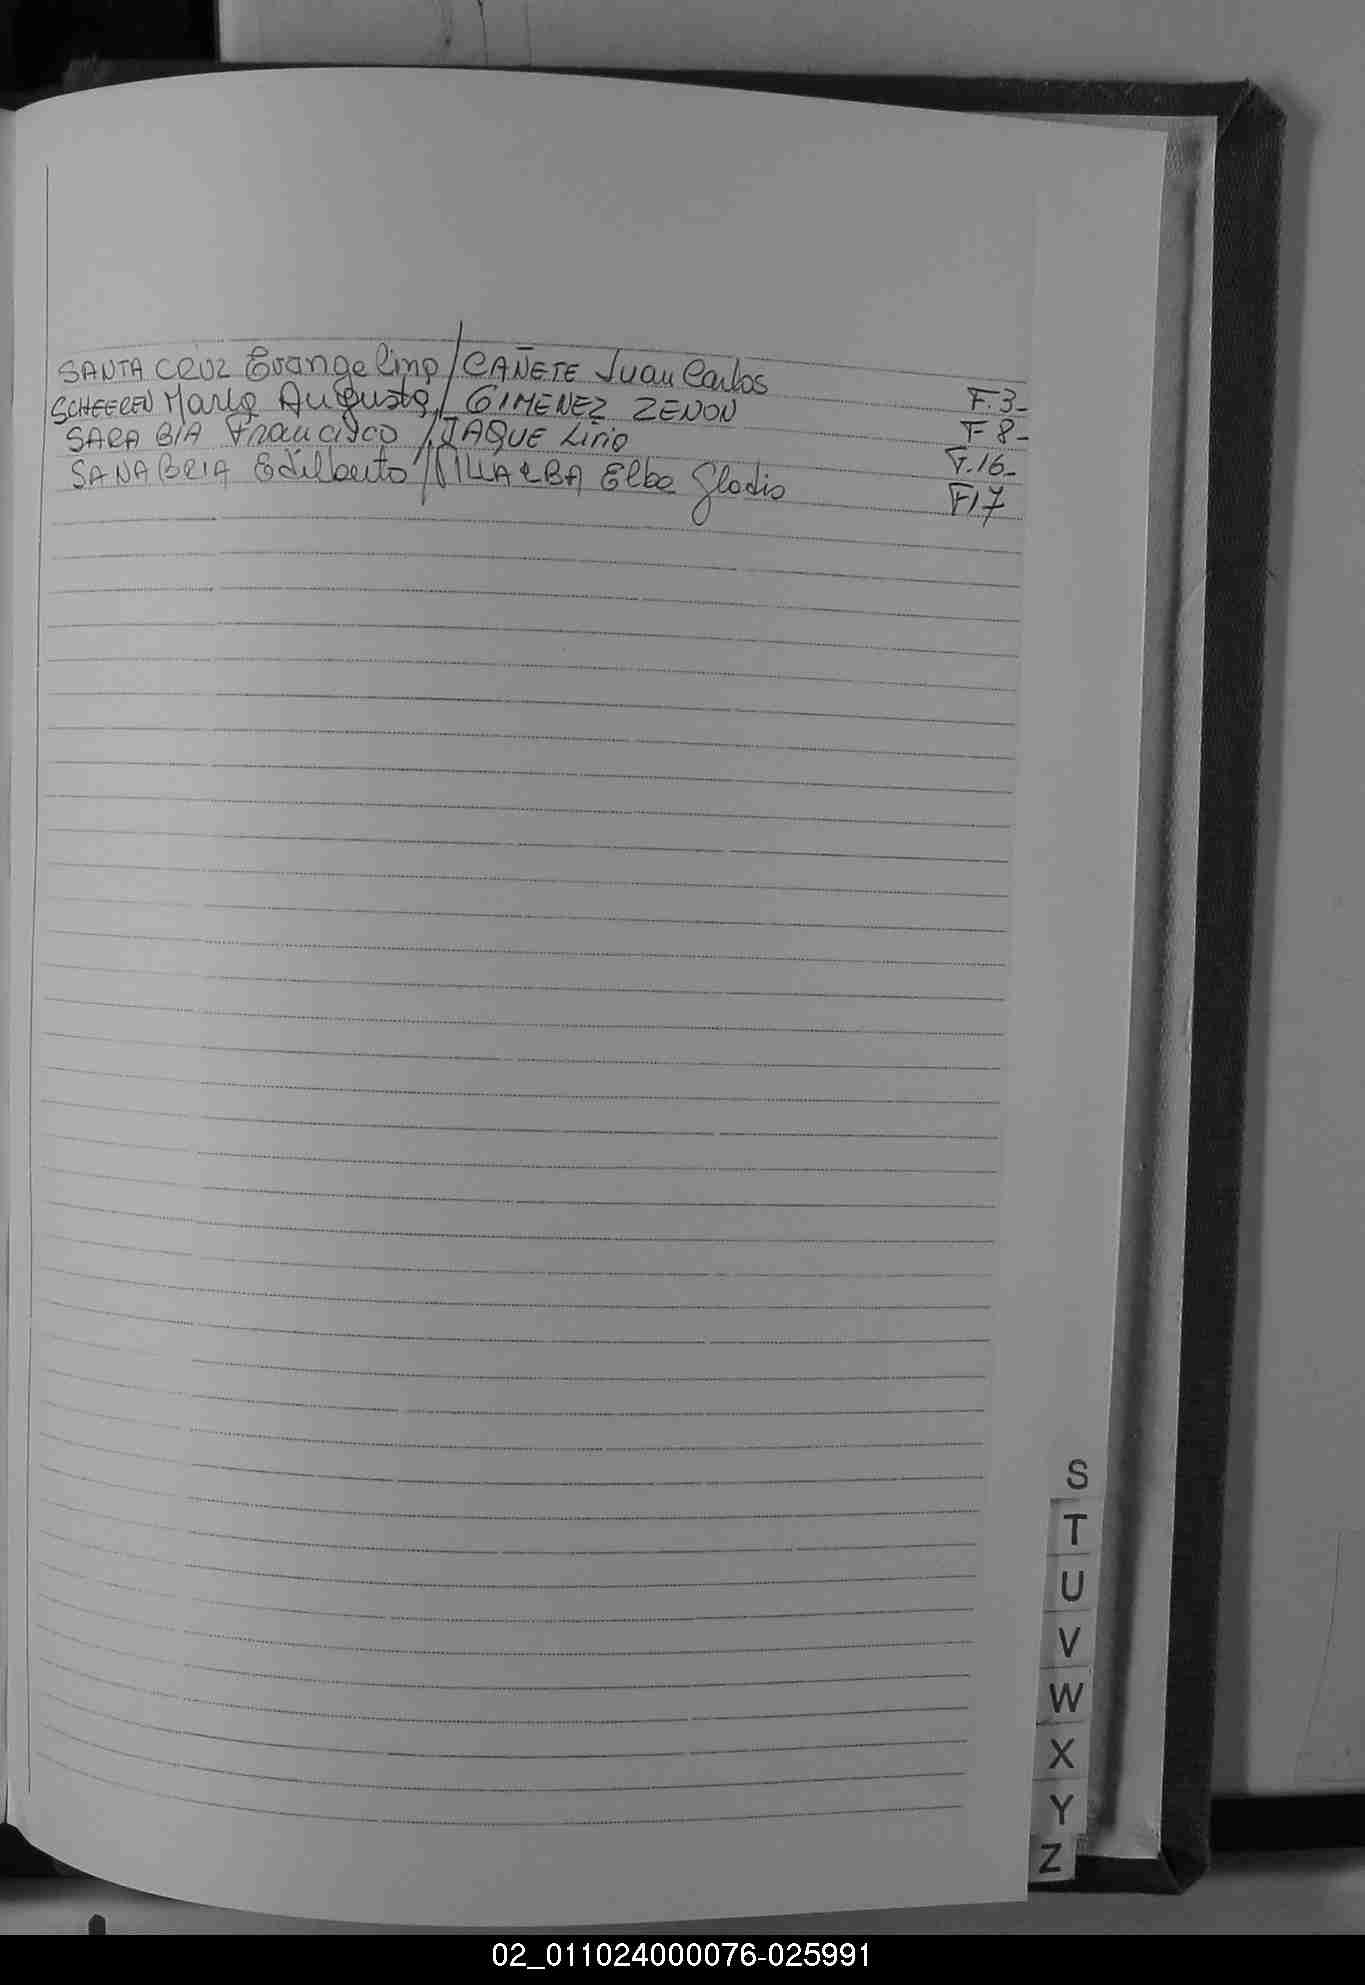 SANTA CRUZ Evangelina / CAÑETE Juan Carlos F.3-
SCHEEREN Maria Augusta / GIMENEZ ZENON F 8-
SARABIA Francisco / JAQUE Liria F.16-
SANABRIA Edilberto / VILLALBA Elba Gladis F17
S
T
U
V
W
X
Y
Z
02_011024000076-025991